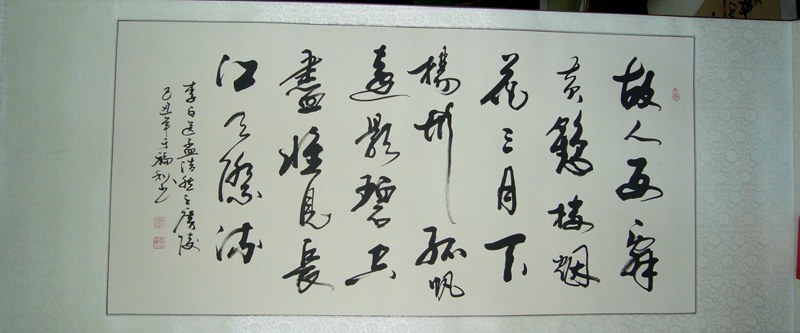 故人西辞
黄鹤楼烟
花三月下
杨州孤帆
远影碧空
尽惟见长
江天际流
李白送孟浩然之广陵
己丑年 福利书